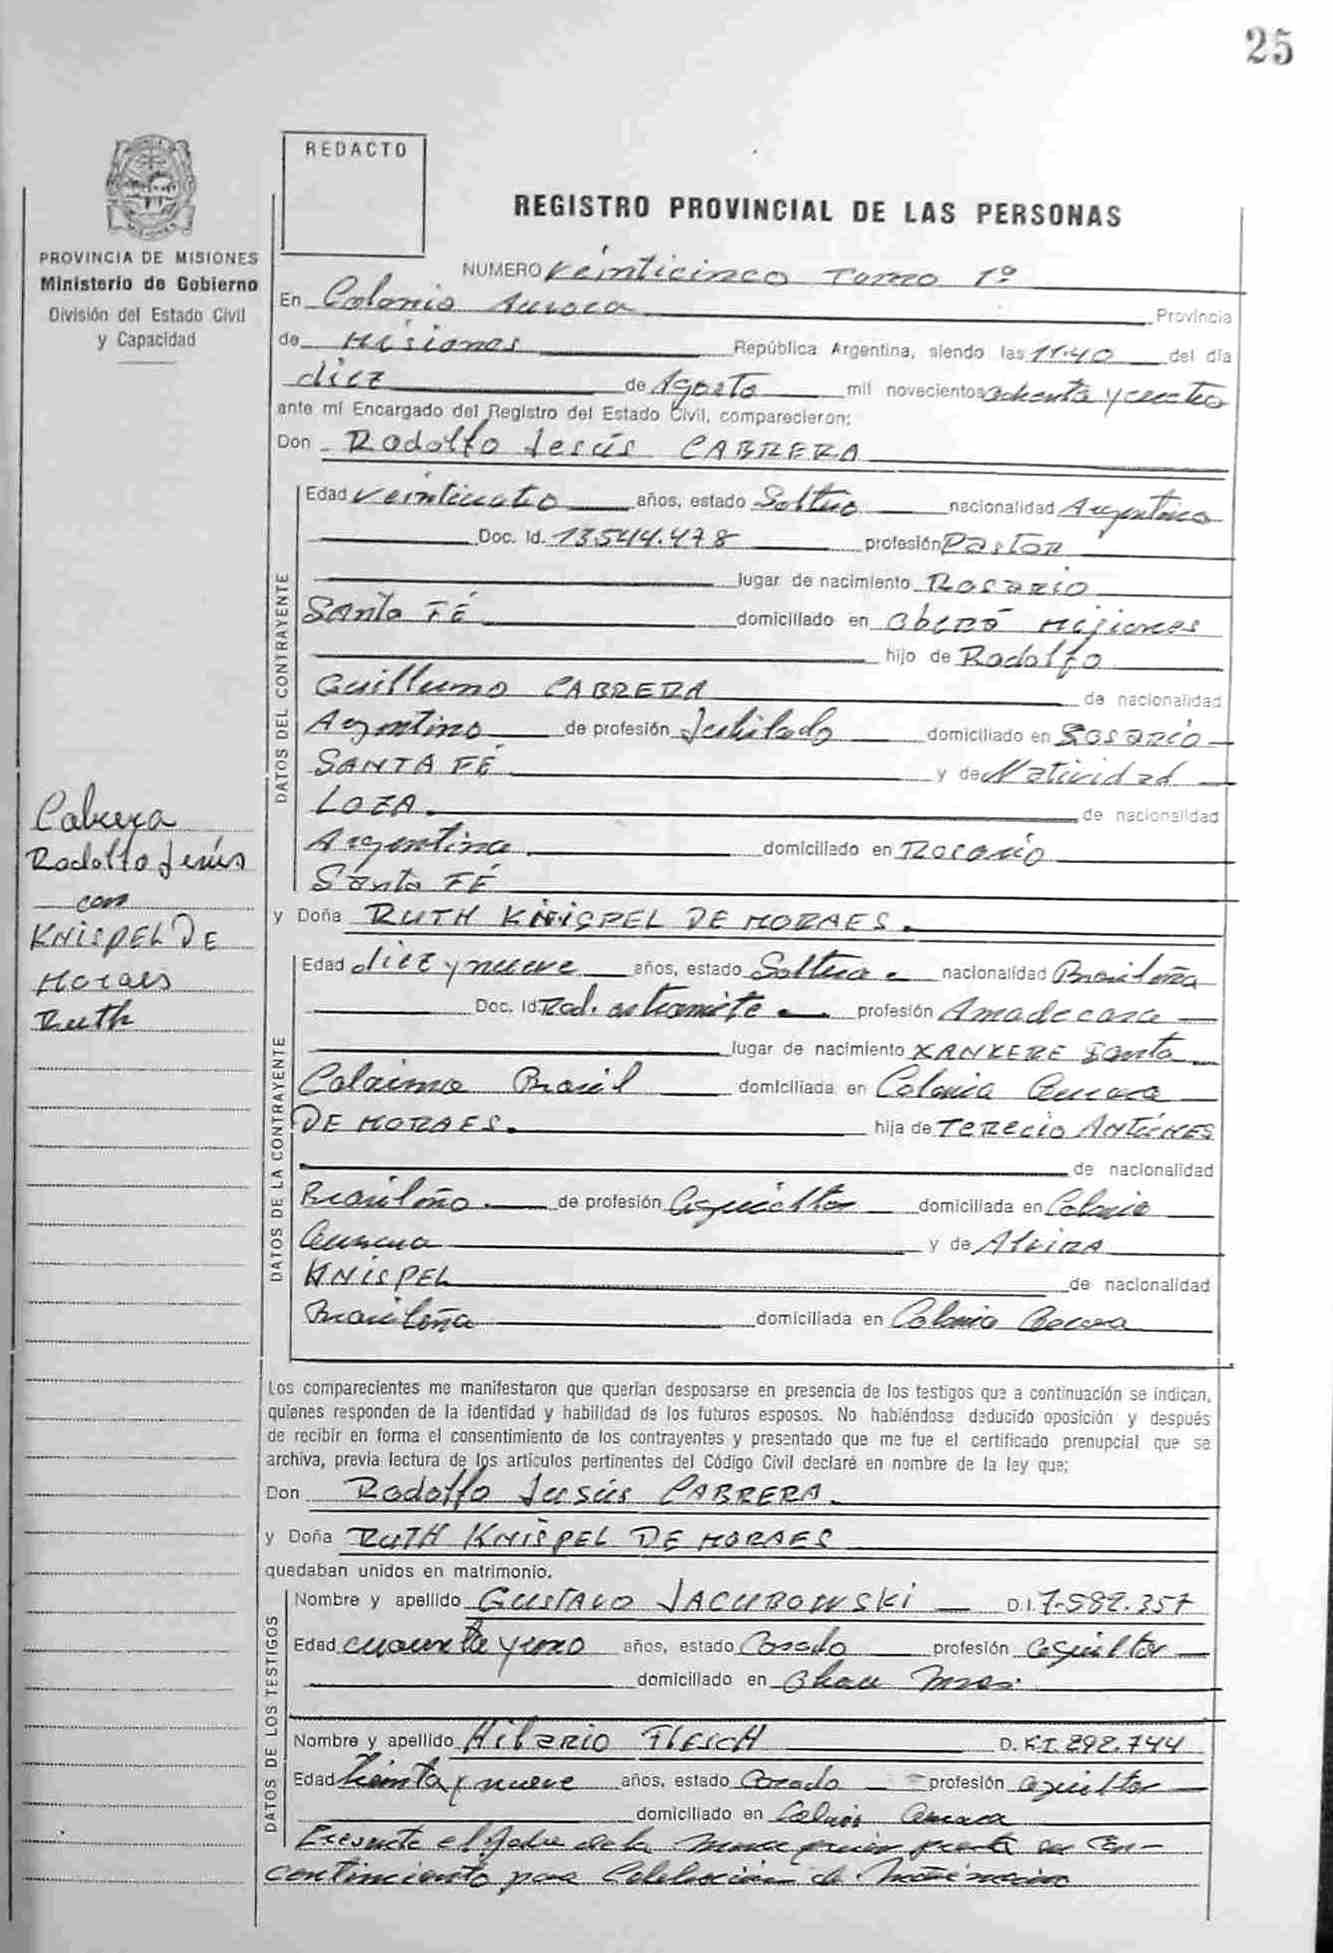 25
REDACTO
REGISTRO PROVINCIAL DE LAS PERSONAS
PROVINCIA DE MISIONES
Ministerio de Gobierno
División del Estado Civil
y Capacidad
NUMERO Veinticinco Tomo 1º
En Colonia Aurora Provincia
de Misiones República Argentina, siendo las 11.40 del día
diez de Agosto mil novecientos ochenta y cuatro
ante mí Encargado del Registro del Estado Civil, comparecieron:
Don Rodolfo Jesús CABRERA
DATOS DEL CONTRAYENTE
Edad Veinticuatro años, estado Soltero nacionalidad Argentino
Doc. Id. 13.544.478 profesión Pastor
lugar de nacimiento Rosario
Santa FÉ domiciliado en Oberá Misiones
hijo de Rodolfo
Guillermo CABRERA de nacionalidad
Argentino de profesión Jubilado domiciliado en Rosario
SANTA FÉ y de Natividad
LOZA. de nacionalidad
Argentina. domiciliado en Rosario
Santa FÉ
Cabrera
Rodolfo Jesús
con
KNISPEL DE
Moraes
Ruth
y Doña RUTH KNISPEL DE MORAES.
DATOS DE LA CONTRAYENTE
Edad diez y nueve años, estado Soltera nacionalidad Brasileña
Doc. Id. Rad. en tramite profesión Ama de casa
lugar de nacimiento XANXERE Santa
Catarina Brasil domiciliada en Colonia Aurora
DE MORAES. hija de TERECIO ANTUNES
de nacionalidad
Brasileño de profesión Agricultor domiciliada en Colonia
Aurora y de
KNISPEL de nacionalidad
Brasileña domiciliada en Colonia Aurora
Los comparecientes me manifestaron que querían desposarse en presencia de los testigos que a continuación se indican,
quienes responden de la identidad y habilidad de los futuros esposos. No habiéndose deducido oposición y después
de recibir en forma el consentimiento de los contrayentes y presentado que me fue el certificado prenupcial que se
archiva, previa lectura de los artículos pertinentes del Código Civil declaré en nombre de la ley que:
Don Rodolfo Jesús CABRERA.
y Doña RUTH KNISPEL DE MORAES
quedaban unidos en matrimonio.
DATOS DE LOS TESTIGOS
Nombre y apellido GUSTAVO JACUBOWSKI D.I. 7.582.357
Edad cuarenta y uno años, estado Casado profesión Agricultor
domiciliado en
Nombre y apellido Hilario FLESCH D. 292.744
Edad treinta y nueve años, estado Casado profesión agricultor
domiciliado en Colonia Aurora
Presente el padre de la menor quien presta su con-
centimiento para Celebración de Matrimonio